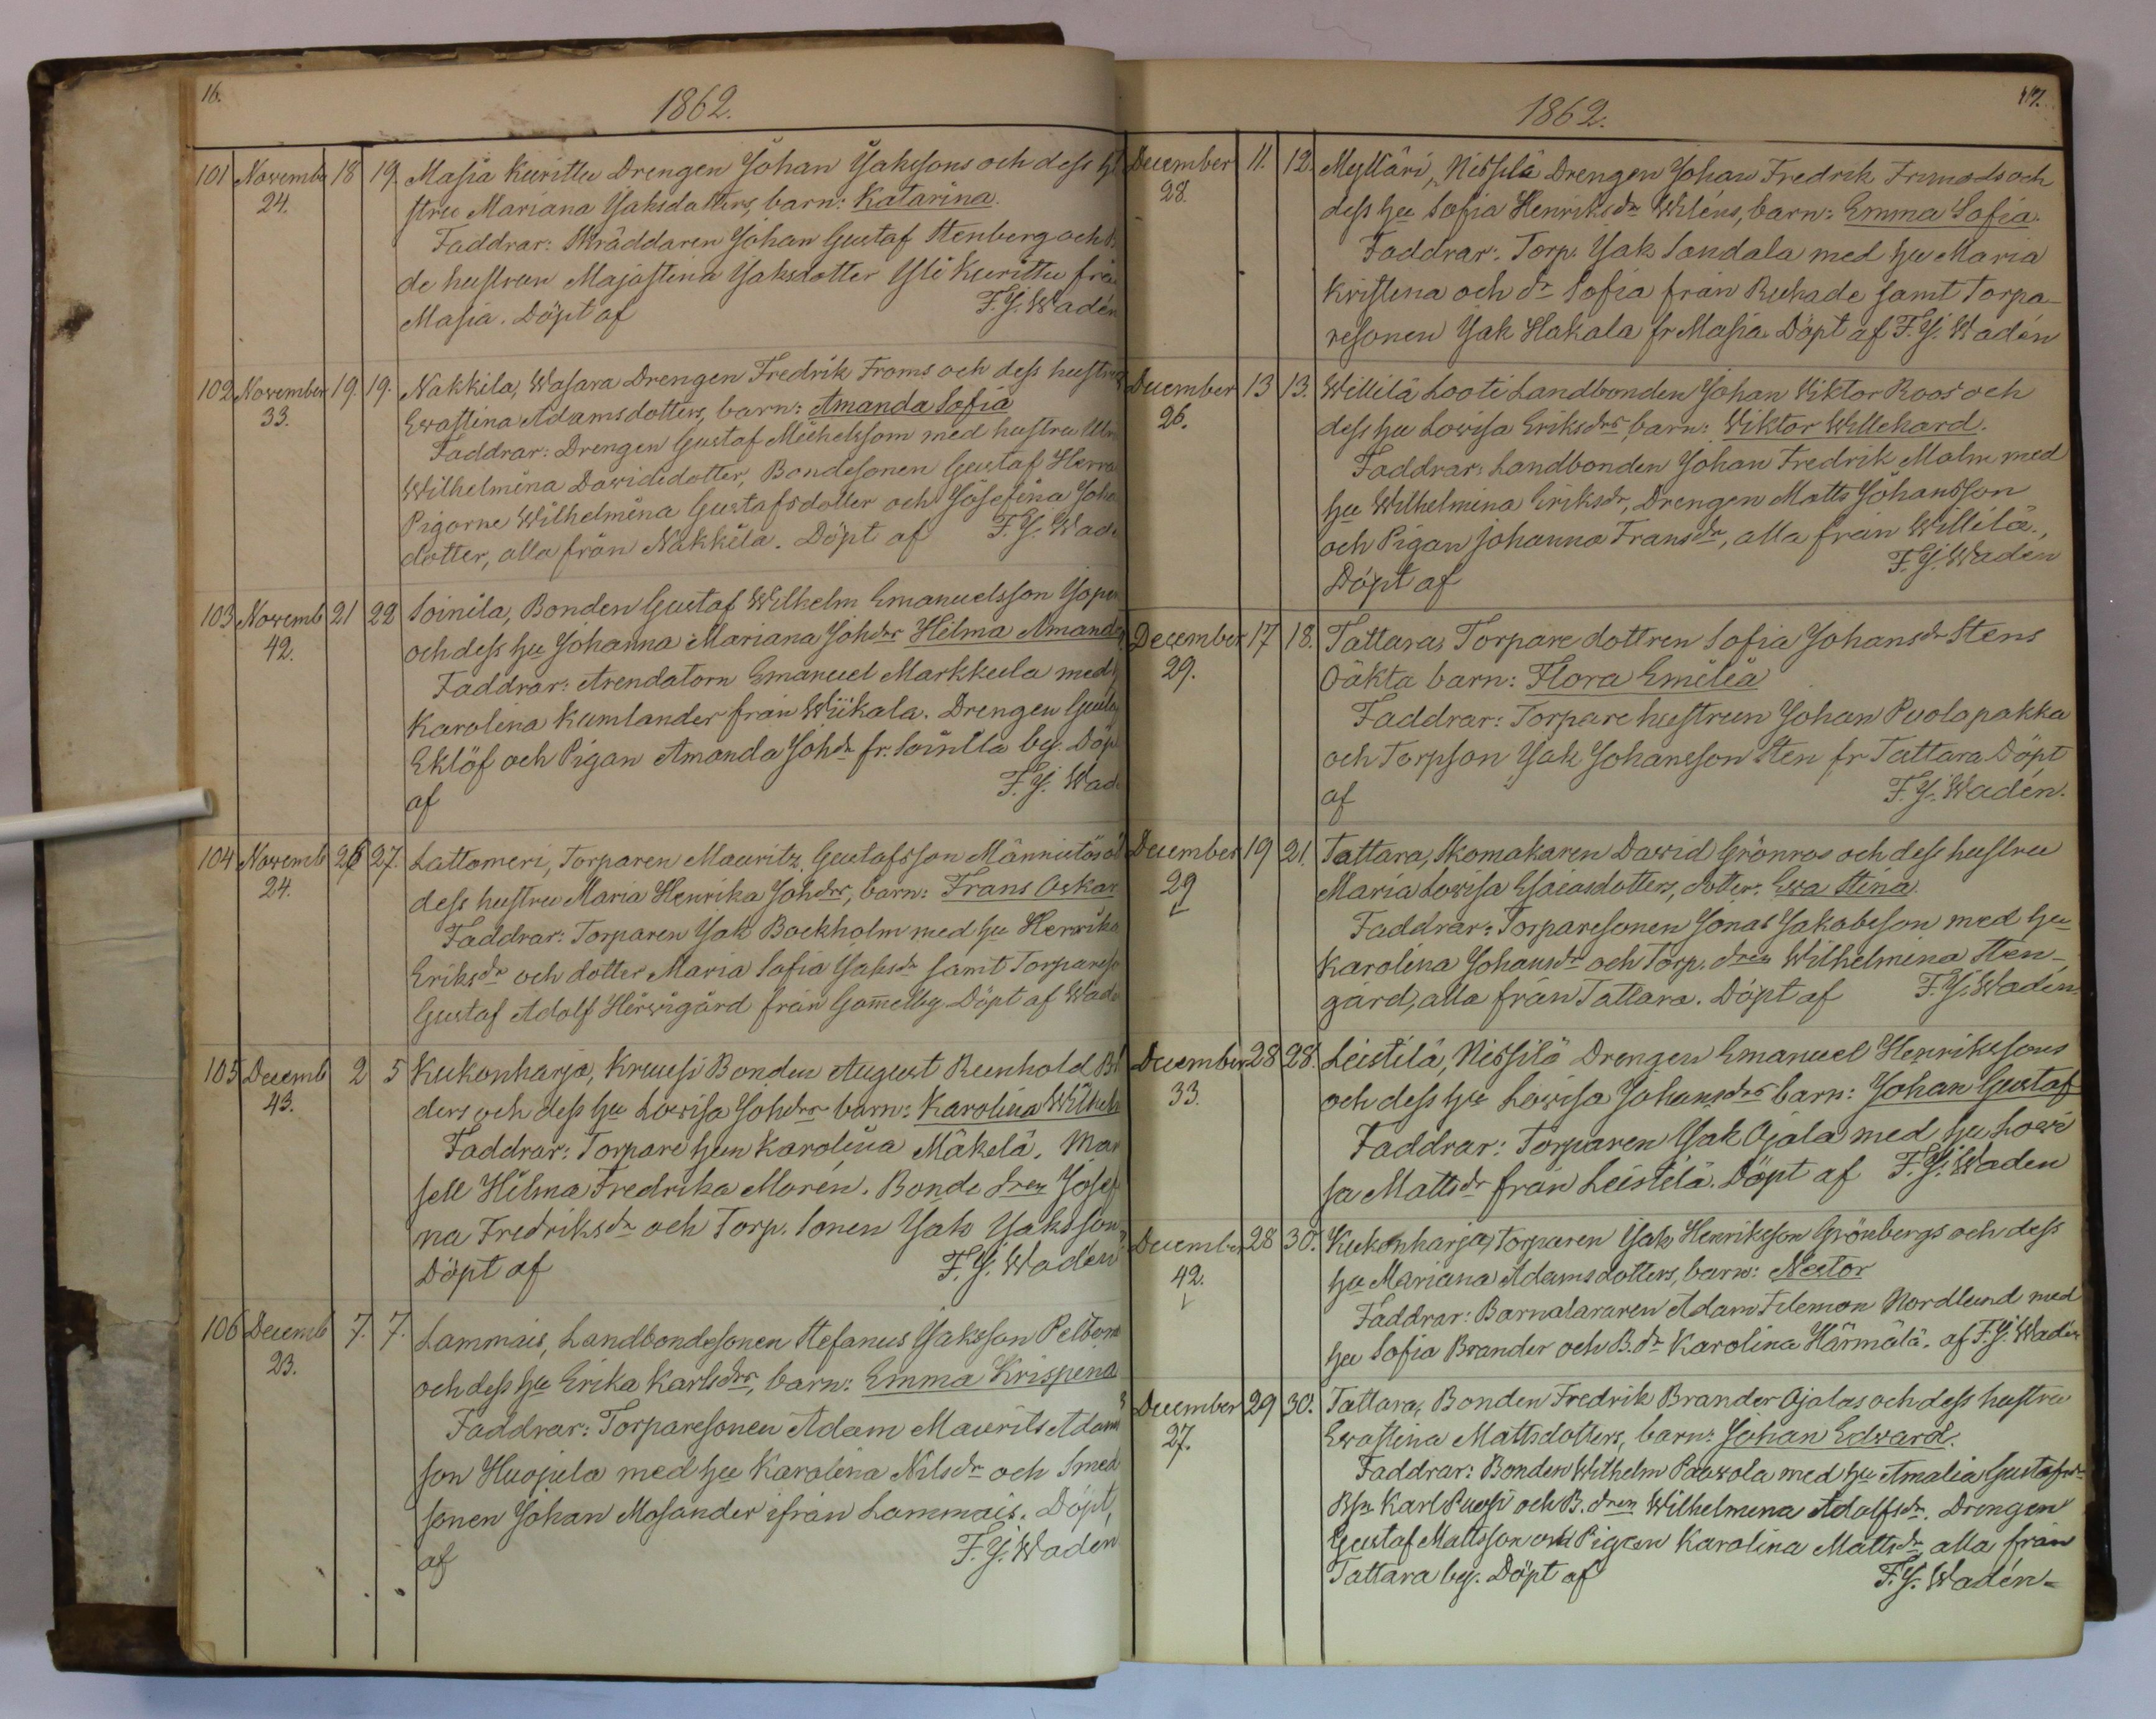 16.
1862.
101 Novemb 18 19. Masia Kurittu Drengen Johan Jaksons och dess
24. stru Mariana Jaksdotters, barn: Katarina.
Faddrar: Skräddaren Johan Gustaf Stenberg och
de hustrun Majastina Jaksdotter Yli Kurittu
Masia. Döpt af F. J. Wadén
102 November 19. 19. Nakkila, Wasara Drengen Fredrik Froms och dess hustru
33. Ewastina Adamsdotters, barn: Amanda Sofia
Faddrar: Drengen Gustaf Mickelsson med hustru
Wilhelmina Dawidsdotter, Bondesonen Gustaf
Pigorne Wilhelmina Gustafsdotter och Josefina
dotter, alla från Nakkila. Döpt af F. J. Wad
103 Novemb 21 22 Soinila, Bonden Gustaf Wilhelm Emanuelsson
42. och dess hu Johanna Mariana Johdrs Hilma Amanda
Faddrar: Arendatorn Emanuel Markkula med
Karolina Kumlander från Wiikala. Drengen
Eklöf och Pigan Amanda Johdr fr. Soinila by. Döpt
af F. J. Wad
104 Novemb 26 27. Lattomeri, Torparen Mauritz Gustafsson
24. dess hustru Maria Henrika Johdrs, barn: Frans Oskar
Faddrar: Torparen Jak Backholm med hu Henrika
Eriksdr och dotter Maria Sofia Jaksdr samt
Gustaf Adolf Herwigård från Gam̄elby. Döpt af Wadé
105 Decemb 2 5 Kukonharja, Kruusi Bonden August Reinhold
43. ders och dess hu Lowisa Johdrs barn: Karolina
Faddrar: Torpare hun Karolina Mäkelä. Mam
sell Hilma Fredrika Morén. Bonde dren Josefi
na Fredriksdr och Torp. sonen Jak Jaksson,
Döpt af F. J. Wadén
106 Decemb 7. 7. Lammais, Landbondesonen Stefanus Jaksson
23. och dess hu Erika Karlsdrs, barn: Emma Krispina
Faddrar: Torparesonen Adam Maurits Adams
son Huojula med hu Karolina Nilsdr och Smed
sonen Johan Mosander ifrån Lammais. Döpt,
af F. J. Wadén
17.
1862.
December 11. 12. Mylläri, Nissilä Drengen Johan Fredrik och
28. dess hu Sofia Henriksdr Wiléns, barn: Emma Sofia.
Faddrar: Torp. Jak Sandala med hu Maria
Kristina och dr Sofia från Ruhade samt Torpa-
resonen Jak Hakala fr Masia Döpt af F. J. Wadén
December 13 13. Willilä Looti Landbonden Johan Viktor Roos och
26. dess hu Lowisa Eriksdrs barn: Wiktor Willehard.
Faddrar: Landbonden Johan Fredrik Malm med
hu Wilhelmina Eriksdr, Drengen Matts Johansson
och Pigan Johanna Fransdr, alla från Willilä.,
Döpt af F. J. Wadén
December 17 18. Tattara, Torpare dottren Sofia Johansdr Stens
29. Oäkta barn: Flora Emilia
Faddrar: Torpare hustrun Johan Puolapakka
och Torpson Jak Johansson Sten fr Tattara Döpt
af F. J. Wadén.
December 19 21. Tattara, Skomakaren Dawid Grönros och dess hustru
29 Maria Lowisa Esaiasdotters, dotter: Ewa Stina.
Faddrar: Torparesonen Jonas Jakobsson med hu
Karolina Johansdr och Torp. dren Wilhelmina Sten-
gård, alla från Tattara. Döpt af F. J. Wadén.
December 28 28. Leistilä, Nissilä Drengen Emanuel Henrikssons
33. och dess hu Lowisa Johansdrs barn: Johan Gustaf
Faddrar: Torparen Jak Ojala med hu Lowi
sa Mattsdr från Leistilä. Döpt af F. J. Waden
December 28 30. Kukonharja, Torparen Jak Henriksson Grönbergs och dess
42. hu Mariana Adamsdotters, barn: Nestor
Faddrar: Barnalararen Adam Filemon Nordlund med
hu Sofia Brander och B. dr Karolina Härmälä. af F. J. Wadén
December 29 30. Tattara, Bonden Fredrik Brander Ojalas och dess hustru
27. Ewastina Mattsdotters, barn: Johan Edward.
Faddrar: Bonden Wilhelm Paawola med hu Amalia Gustafsdr
Bsn Karl Puosi och B. dren Wilhelmina Adolfsdr. Drengen
Gustaf Mattsson och Pigan Karolina Mattsdr, alla från
Tattara by. Döpt af F. J. Wadén-